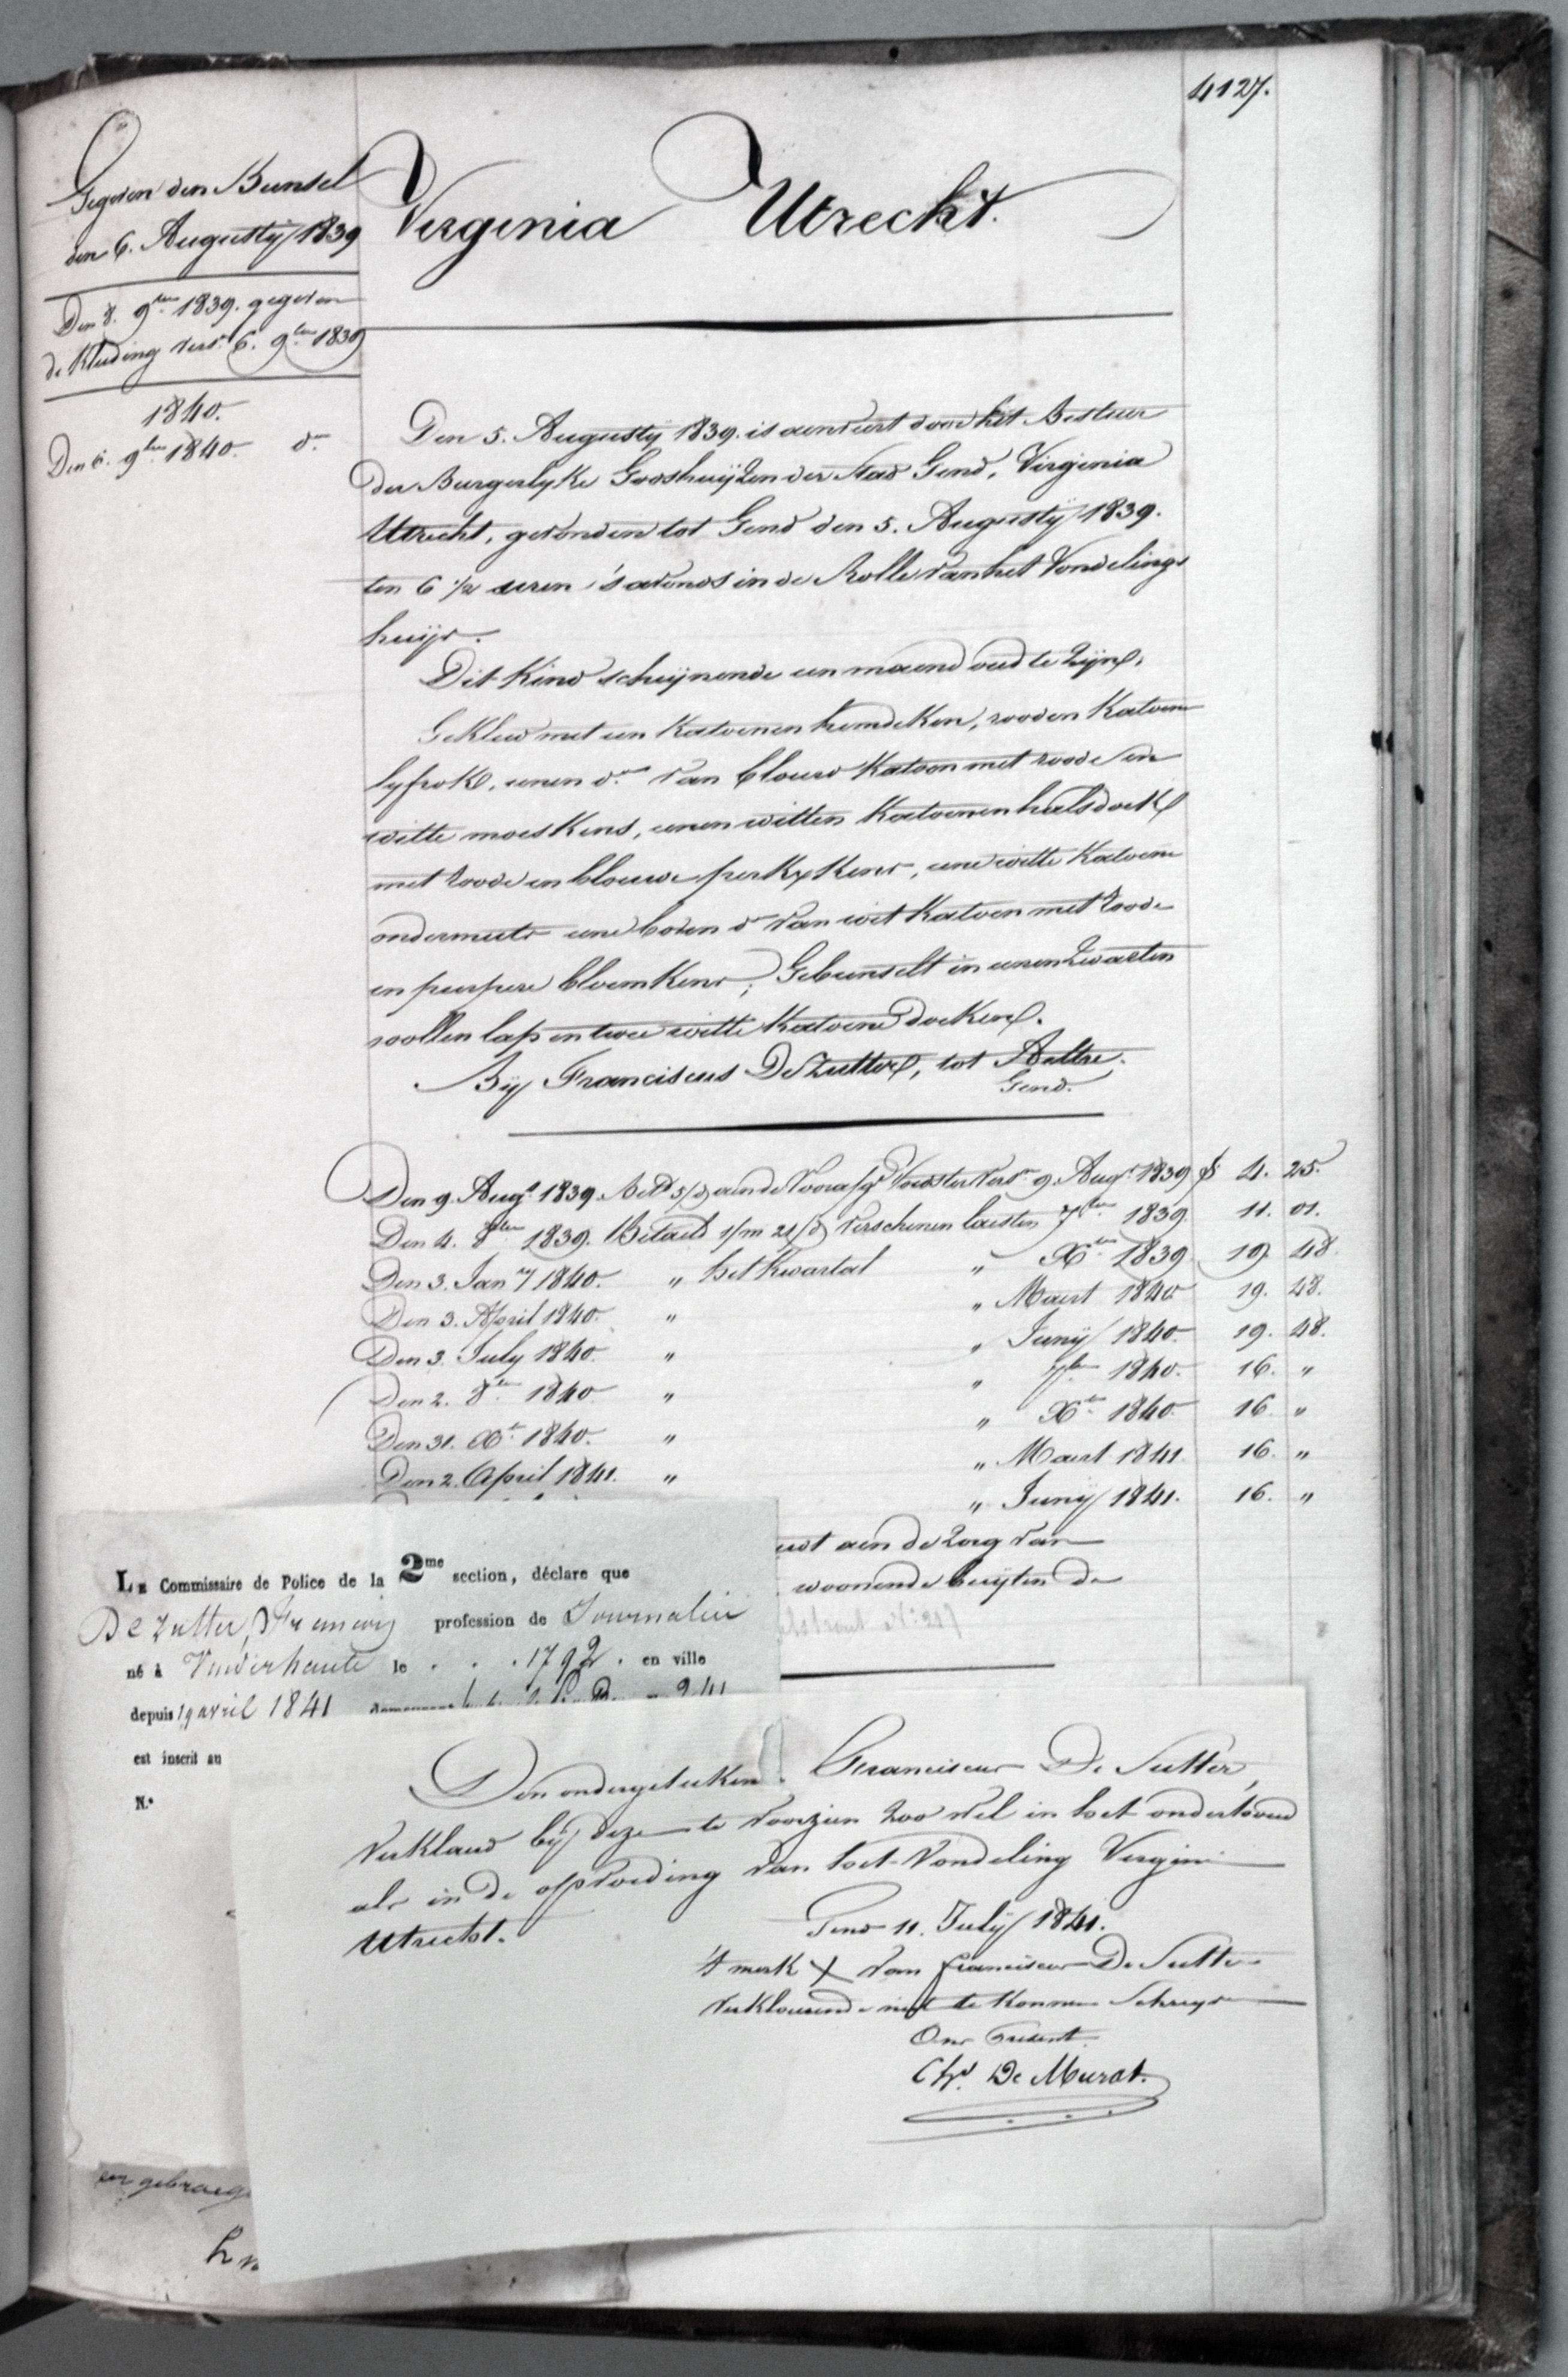 4127.
Gegeven den Bunsel
den 6. Augustij 1839
Den 8. 9ber 1839. gegeven
de Kleeding vers. 6. 9ber 1839
1840.
Den 6. 9ber 1840. do
Virginia Utrecht.
Den 5. Augustij 1839. is aenveert door het Bestuer
der Burgerlyke Godshuijzen der Stad Gend, Virginia
Utrecht, gevonden tot Gend den 5. Augustij 1839.
ten 6 1/2 uren 's avonds in de Rolle van het Vondelings
huijs.
Dit Kind schijnende een maend oud te zijn.
Gekleed met een Katoenen hemdeken, rooden Katoene
lyfrok, eenen do van blauw Katoen met roode en
witte moeskens, eenen witten Katoenen halsdoek
met roode en blauwe perkxkens, eene witte Katoene
ondermuts eene boven do van wit Katoen met roode
en purpere bloemkens; Gebunselt in eenen zwarten
wollen lap en twee witte Katoene doeken.
Bij Franciscus De Zutter, tot Aeltre.
Gend.
Den 9. Augt 1839. Betd 5/d aen de Voorafge Voedster vers. 9. Augt 1839 f 4. 25.
Den 4. 8ber 1839. Betaeld 1/m 21/d verschenen laesten 7ber 1839. 11. 01.
Den 3. Janry 1840. " het Kwartal " Xber 1839 19. 48.
Den 3. April 1840. " " Maert 1840 19. 48.
Den 3. July 1840. " " Junij 1840 19. 48.
Den 2. 8ber 1840 " " 7ber 1840. 16. "
Den 31. Xbr 1840. " " Xber 1840 16. "
Den 2. April 1841. " " Maert 1841 16. "
" Junij 1841. 16. "
aen de zorg van
woonende buijten de
Le Commissaire de Police de la 2me section, déclare que
De Zutter, Francois profession de Journalier
né à Vinderhaute le . . . 1792 . en ville
depuis 19 avril 1841
est inscrit au
N.°
Den ondergeteeken. Franciscus De Sutter,
verklaerd bij deze te voorzien zoo wel in het onderhoud
als in de opvoeding van het vondeling Virginie
Utrecht.
Gend 11. Julij 1841.
't merk X van franciscus De Sutter
verklaerende niet te konnen schryven
Ons Present
Chs. De Murat.
en gebraegt